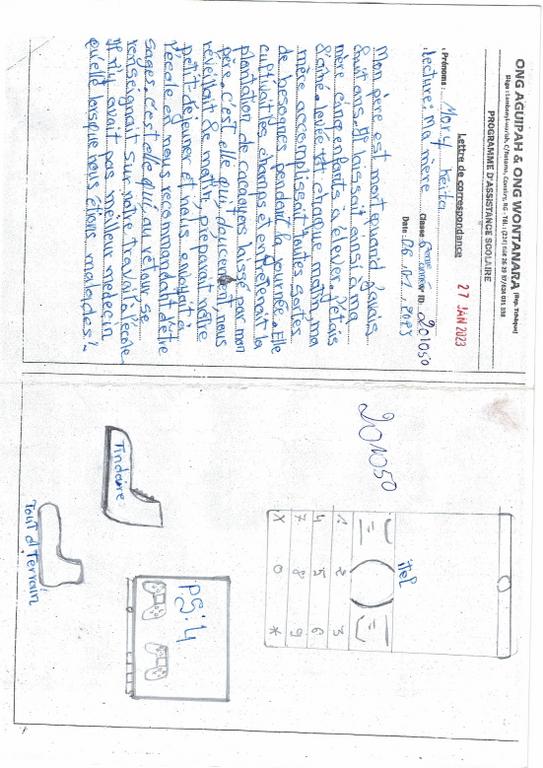 ONG AGUIPAH & ONG WONTANARA (Rép. Tchèque)
PROGRAMME D'ASSISTANCE SCOLAIRE
Lettre de correspondance
27 JAN 2023
Prénoms: Mory Keita Classe: ID: 201050
Lecture: Ma mère Date:
Mon père est mort quand j'avais
huit ans. Il laissait ainsi à ma
mère cinq enfants à élever. J'étais
l'aîné. levée tôt chaque matin, ma
mère accomplissait toutes sortes
de besognes pendant la journée. Elle
cultivait les champs et entretenait la
plantation de cacaoyers laissé par mon
père. c'est elle qui, doucement, nous
réveillait le matin, preparait nôtre
petit déjeuner et nous envoyait à
l'école en nous recommandant d'être
sages. C'est elle qui, au retour, se
renseignait sur nôtre travail à l'école
Il n'y avait pas meilleur medecin
qu'elle lorsque nous étions malades.
201050
itel
1 2 3
4 5 6
7 8 9
X 0 *
Tindoire
Tout d Terrain
PS:4